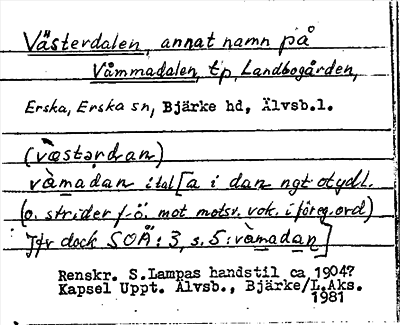 Västerdalen, annat namn på
Våmmadalen, tp, Landbogården,
Erska, Erska sn, Bjärke hd, Älvsb.l.
(væstərdan)
våmadan i tal [a i dan ngt otydl.
(o. strider f.ö. mot motsv. vok. i föreg. ord)
Jfr dock SOÄ: 3, s. 5: våmadan]
Renskr. S.Lampas handstil ca 1904?
Kapsel Uppt. Älvsb., Bjärke/L.Aks.
1981